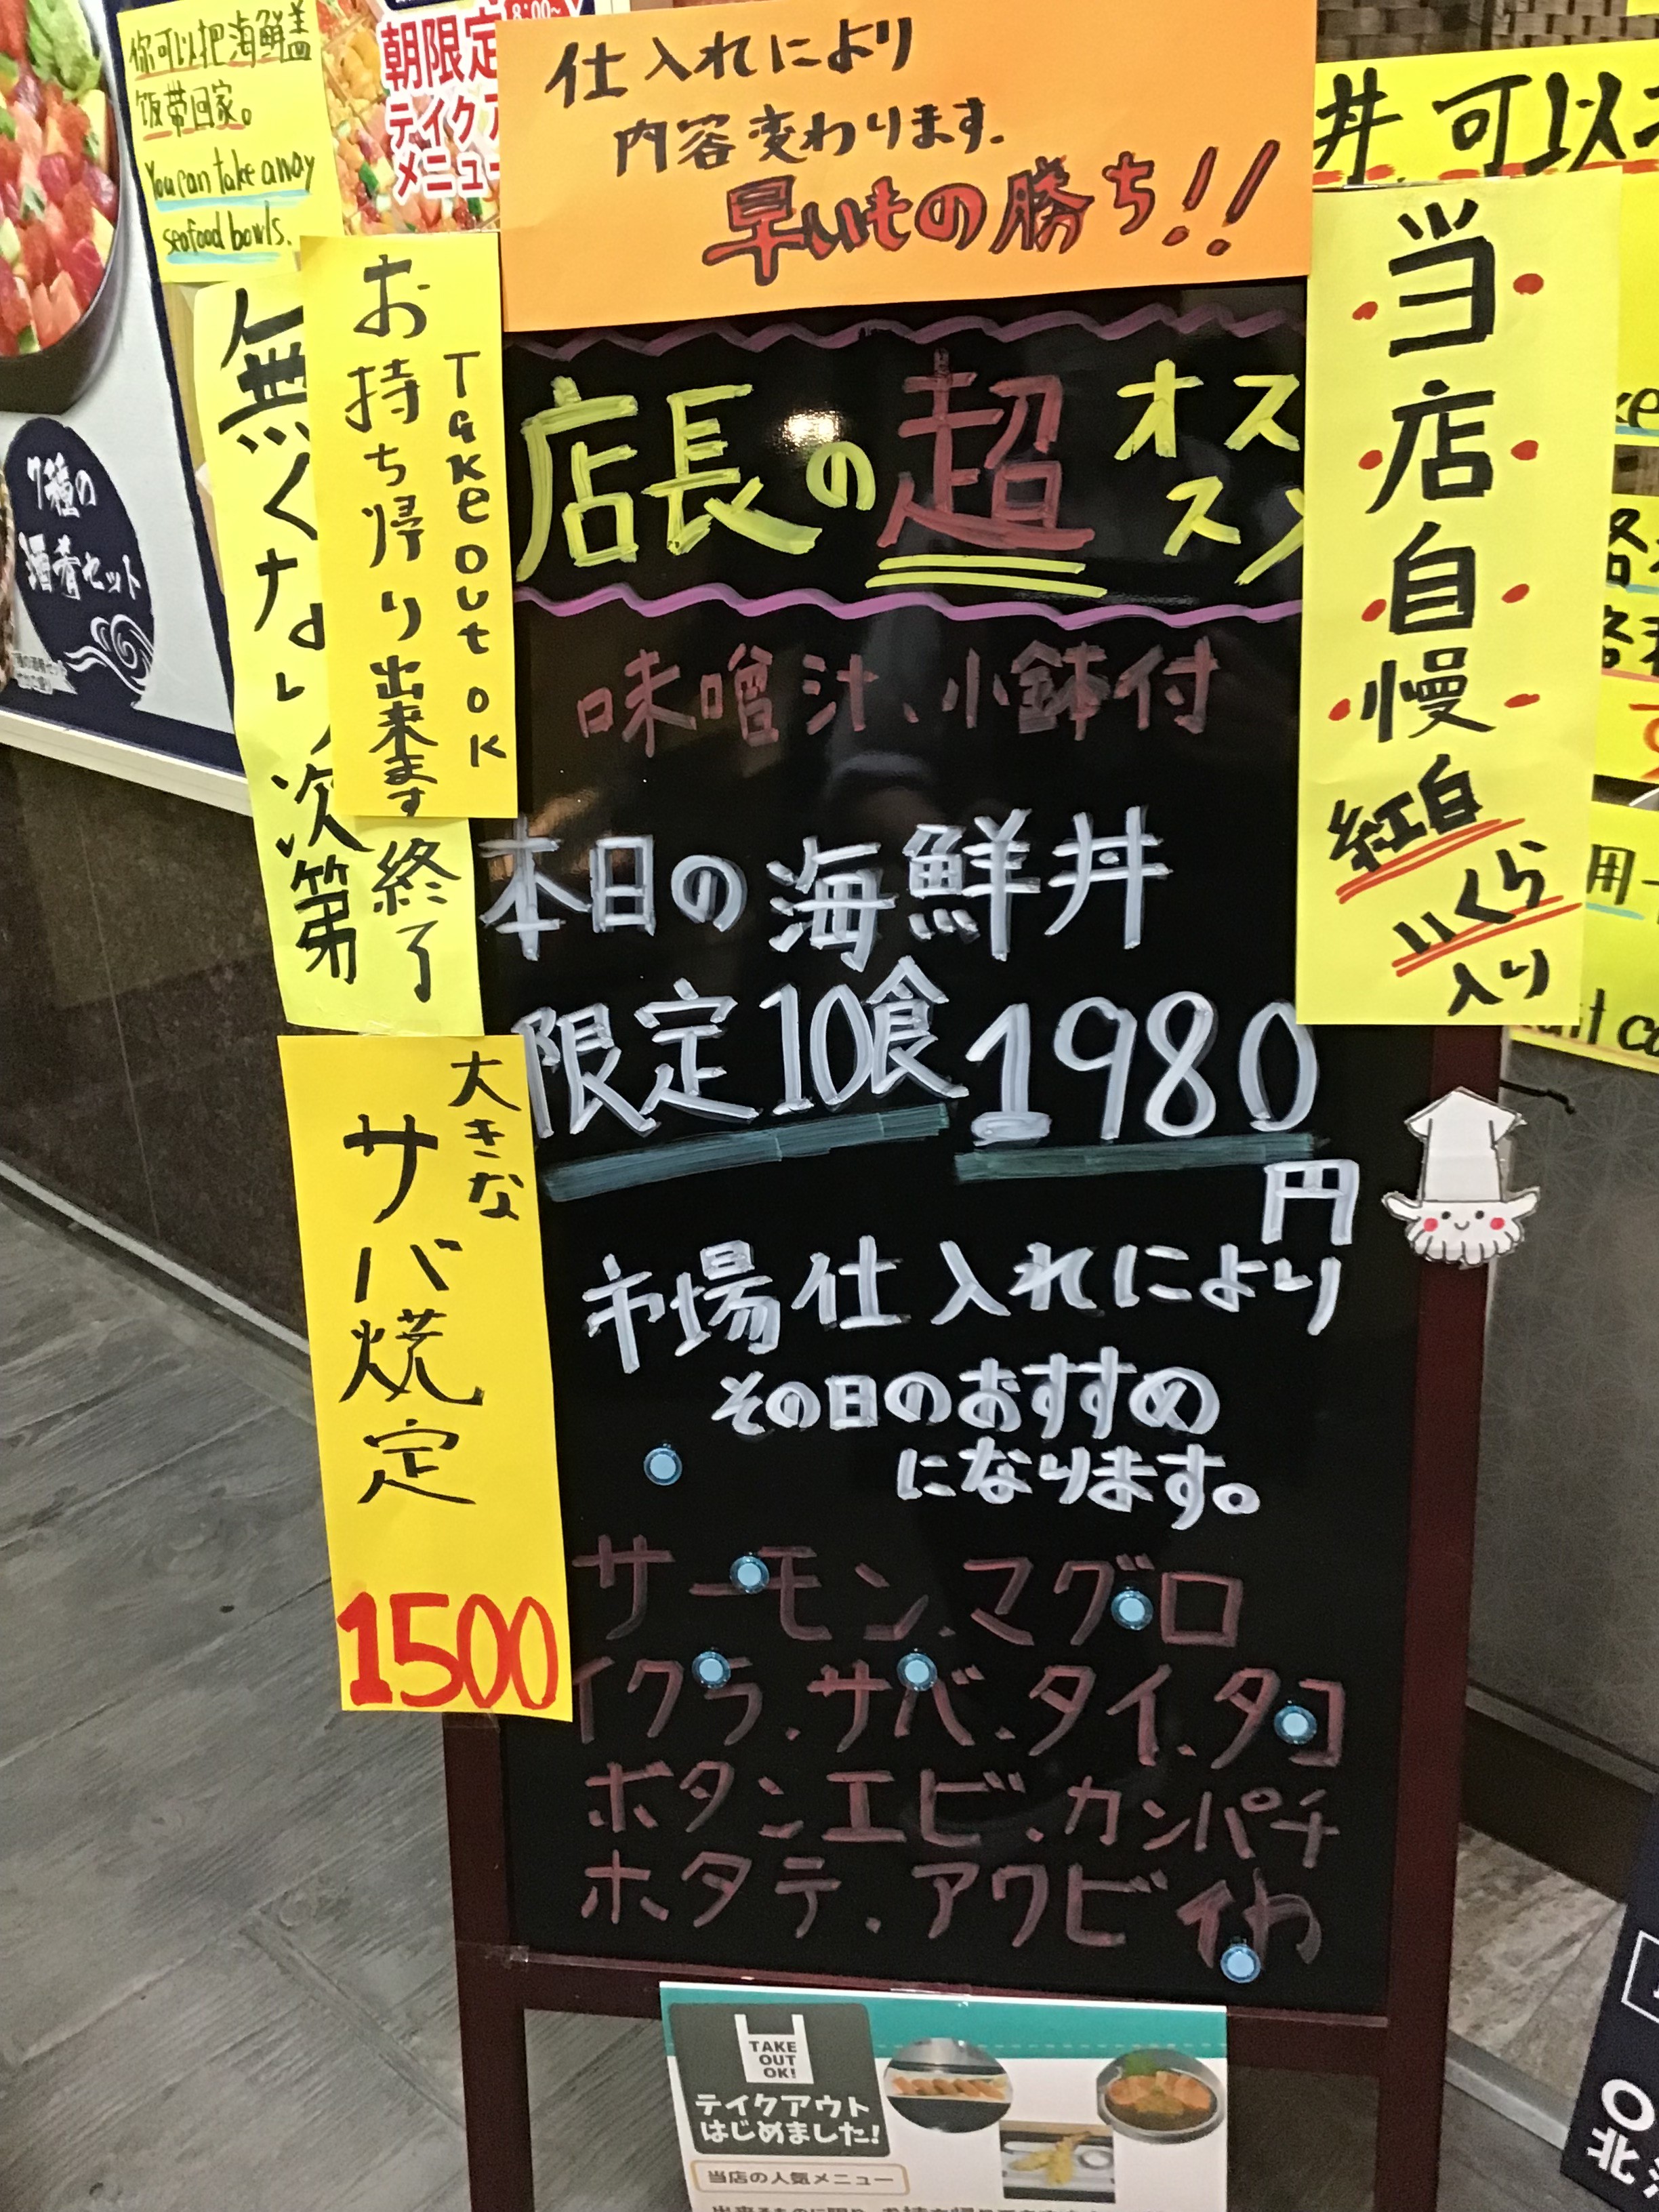 你可以把海鲜盖
饭带回家。
You can take away
seafood bowls.
8:00~
朝限定
テイクア
メニュー
仕入れにより
内容変わります.
早いもの勝ち!!
丼 可以
無くなり次第
終了
お持ち帰り出来ます
Take out OK
店長の超オス
スメ
当店自慢
紅白
いくら
入り
7種の
酒肴セット
味噌汁、小鉢付
本日の海鮮丼
限定10食 1980
円
大きな
サバ焼定
1500
市場仕入れにより
その日のおすすめ
になります。
サーモン、マグロ
イクラ、サバ、タイ、タコ
ボタンエビ、カンパチ
ホタテ、アワビ
TAKE
OUT
OK!
テイクアウト
はじめました!
当店の人気メニュー